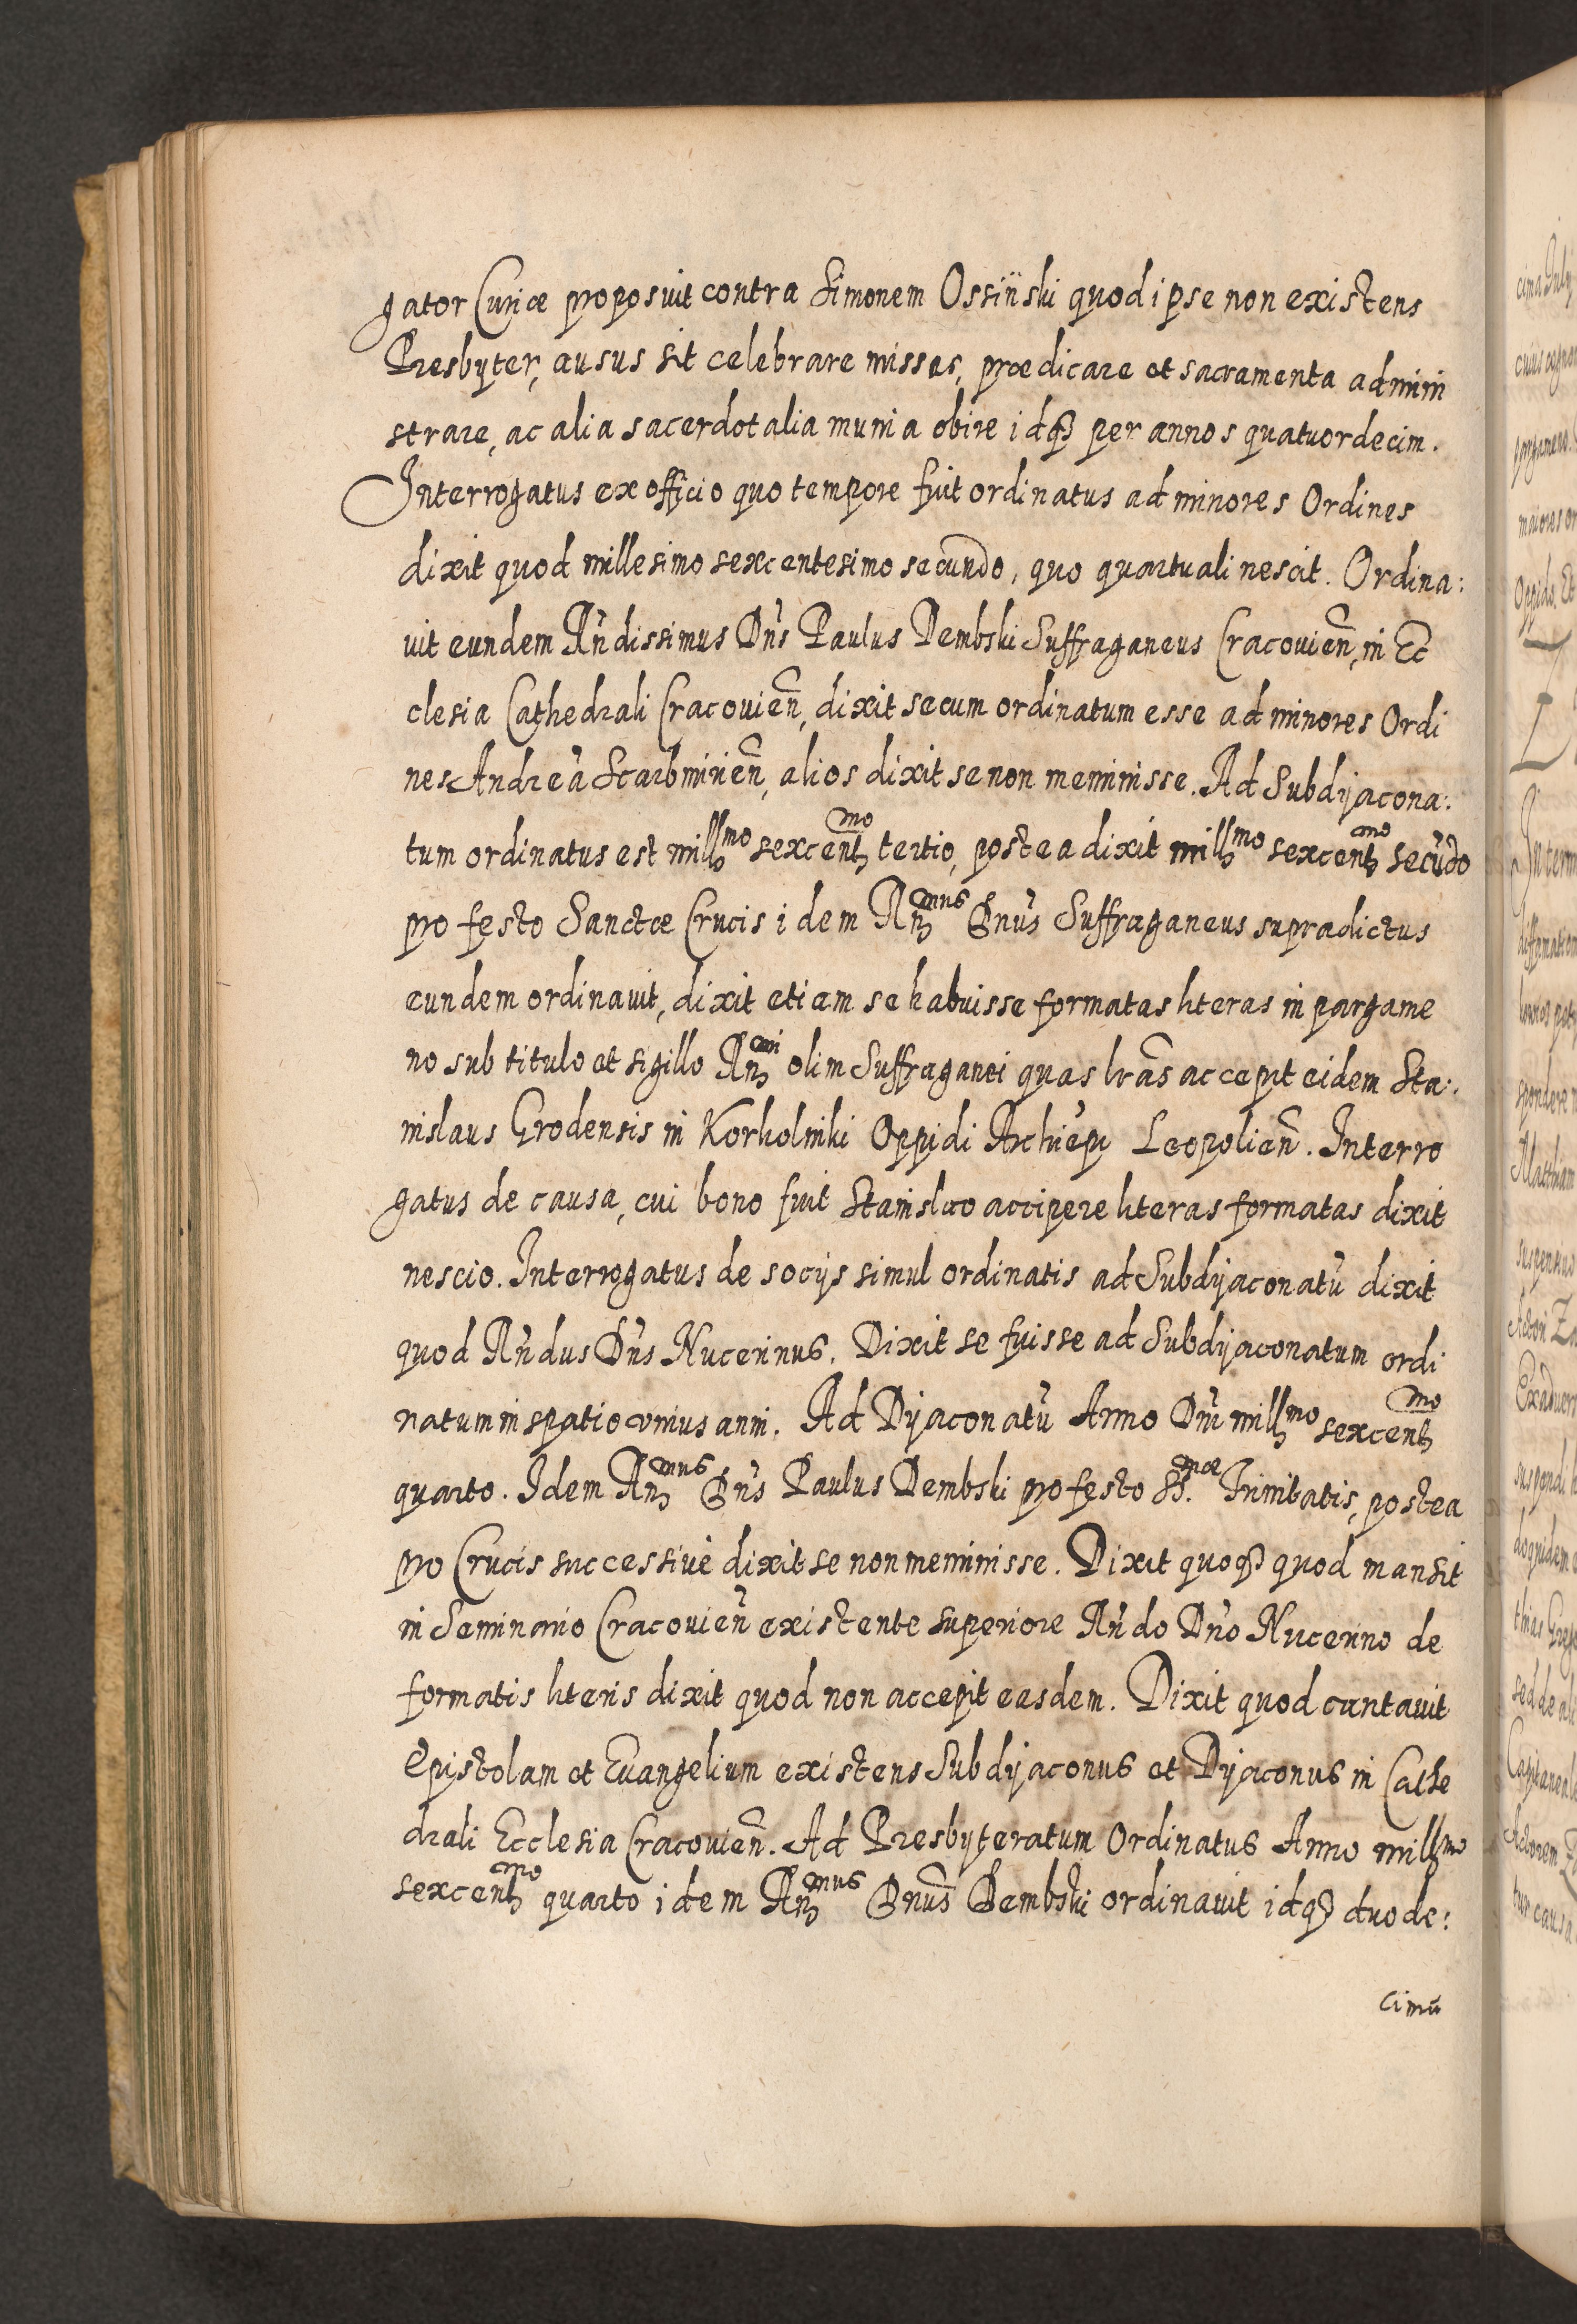 gator Curiæ proposuit contra Simonem Ossiński quod ipse non existens
Presbyter, ausus sit celebrare missas, prædicare et sacramenta admini
strare, ac alia sacerdotalia munia obire idq₃ per annos quatuordecim.
Interrogatus ex officio quo tempore fuit ordinatus ad minores Ordines
dixit quod millesimo sexcentesimo secundo, quo quartuali nescit. Ordina:
uit eundem Rñdissimus Dñs Paulus Dembski Suffraganeus Cracouieñ, in Ec
clesia Cathedrali Cracouieñ, dixit secum ordinatum esse ad minores Ordi
nes Andreā Scarbimirieñ, alios dixit se non meminisse. Ad Subdyacona:
tum ordinatus est millᵐᵒ sexcentᵐᵒ tertio, postea dixit millᵐᵒ sexcentᵐᵒ secūdo
pro festo Sanctæ Crucis idem Rñᵐᵘˢ Dnūs Suffraganeus supradictus
eundem ordinauit, dixit etiam se habuisse formatas literas in pargame
no sub titulo et sigillo Rñᵐⁱ olim Suffraganei quas lrās accepit eidem Sta:
nislaus Grodensis in Korholniki Oppidi Archiēpi Leopolieñ. Interro
gatus de causa, cui bono fuit Stanislao accipere literas formatas dixit
nescio. Interrogatus de socijs simul ordinatis ad Subdyaconatū dixit
quod Rñdus Dñs Nucerinus. Dixit se fuisse ad Subdyaconatum ordi
natum in spatio vnius anni. Ad Dyaconatū Anno Dñi millᵐᵒ sexcentᵐᵒ
quarto. Idem Rñᵐᵘˢ Dñs Paulus Dembski pro festo SS.ᵐæ Trinitatis, postea
pro Crucis successiuè dixit se non meminisse. Dixit quoq₃ quod mansit
in Seminario Cracouieñ existente superiore Rñdo Dño Nucerino de
formatis literis dixit quod non accepit easdem. Dixit quod cantauit
Epistolam et Euangelium existens Subdyaconus et Dyaconus in Cathe
drali Ecclesia Cracouieñ. Ad Presbyteratum Ordinatus Anno millᵐᵒ
sexcentᵐᵒ quarto idem Rñᵐᵘˢ Dnūs Dembski ordinauit idq₃ duode:
cimū